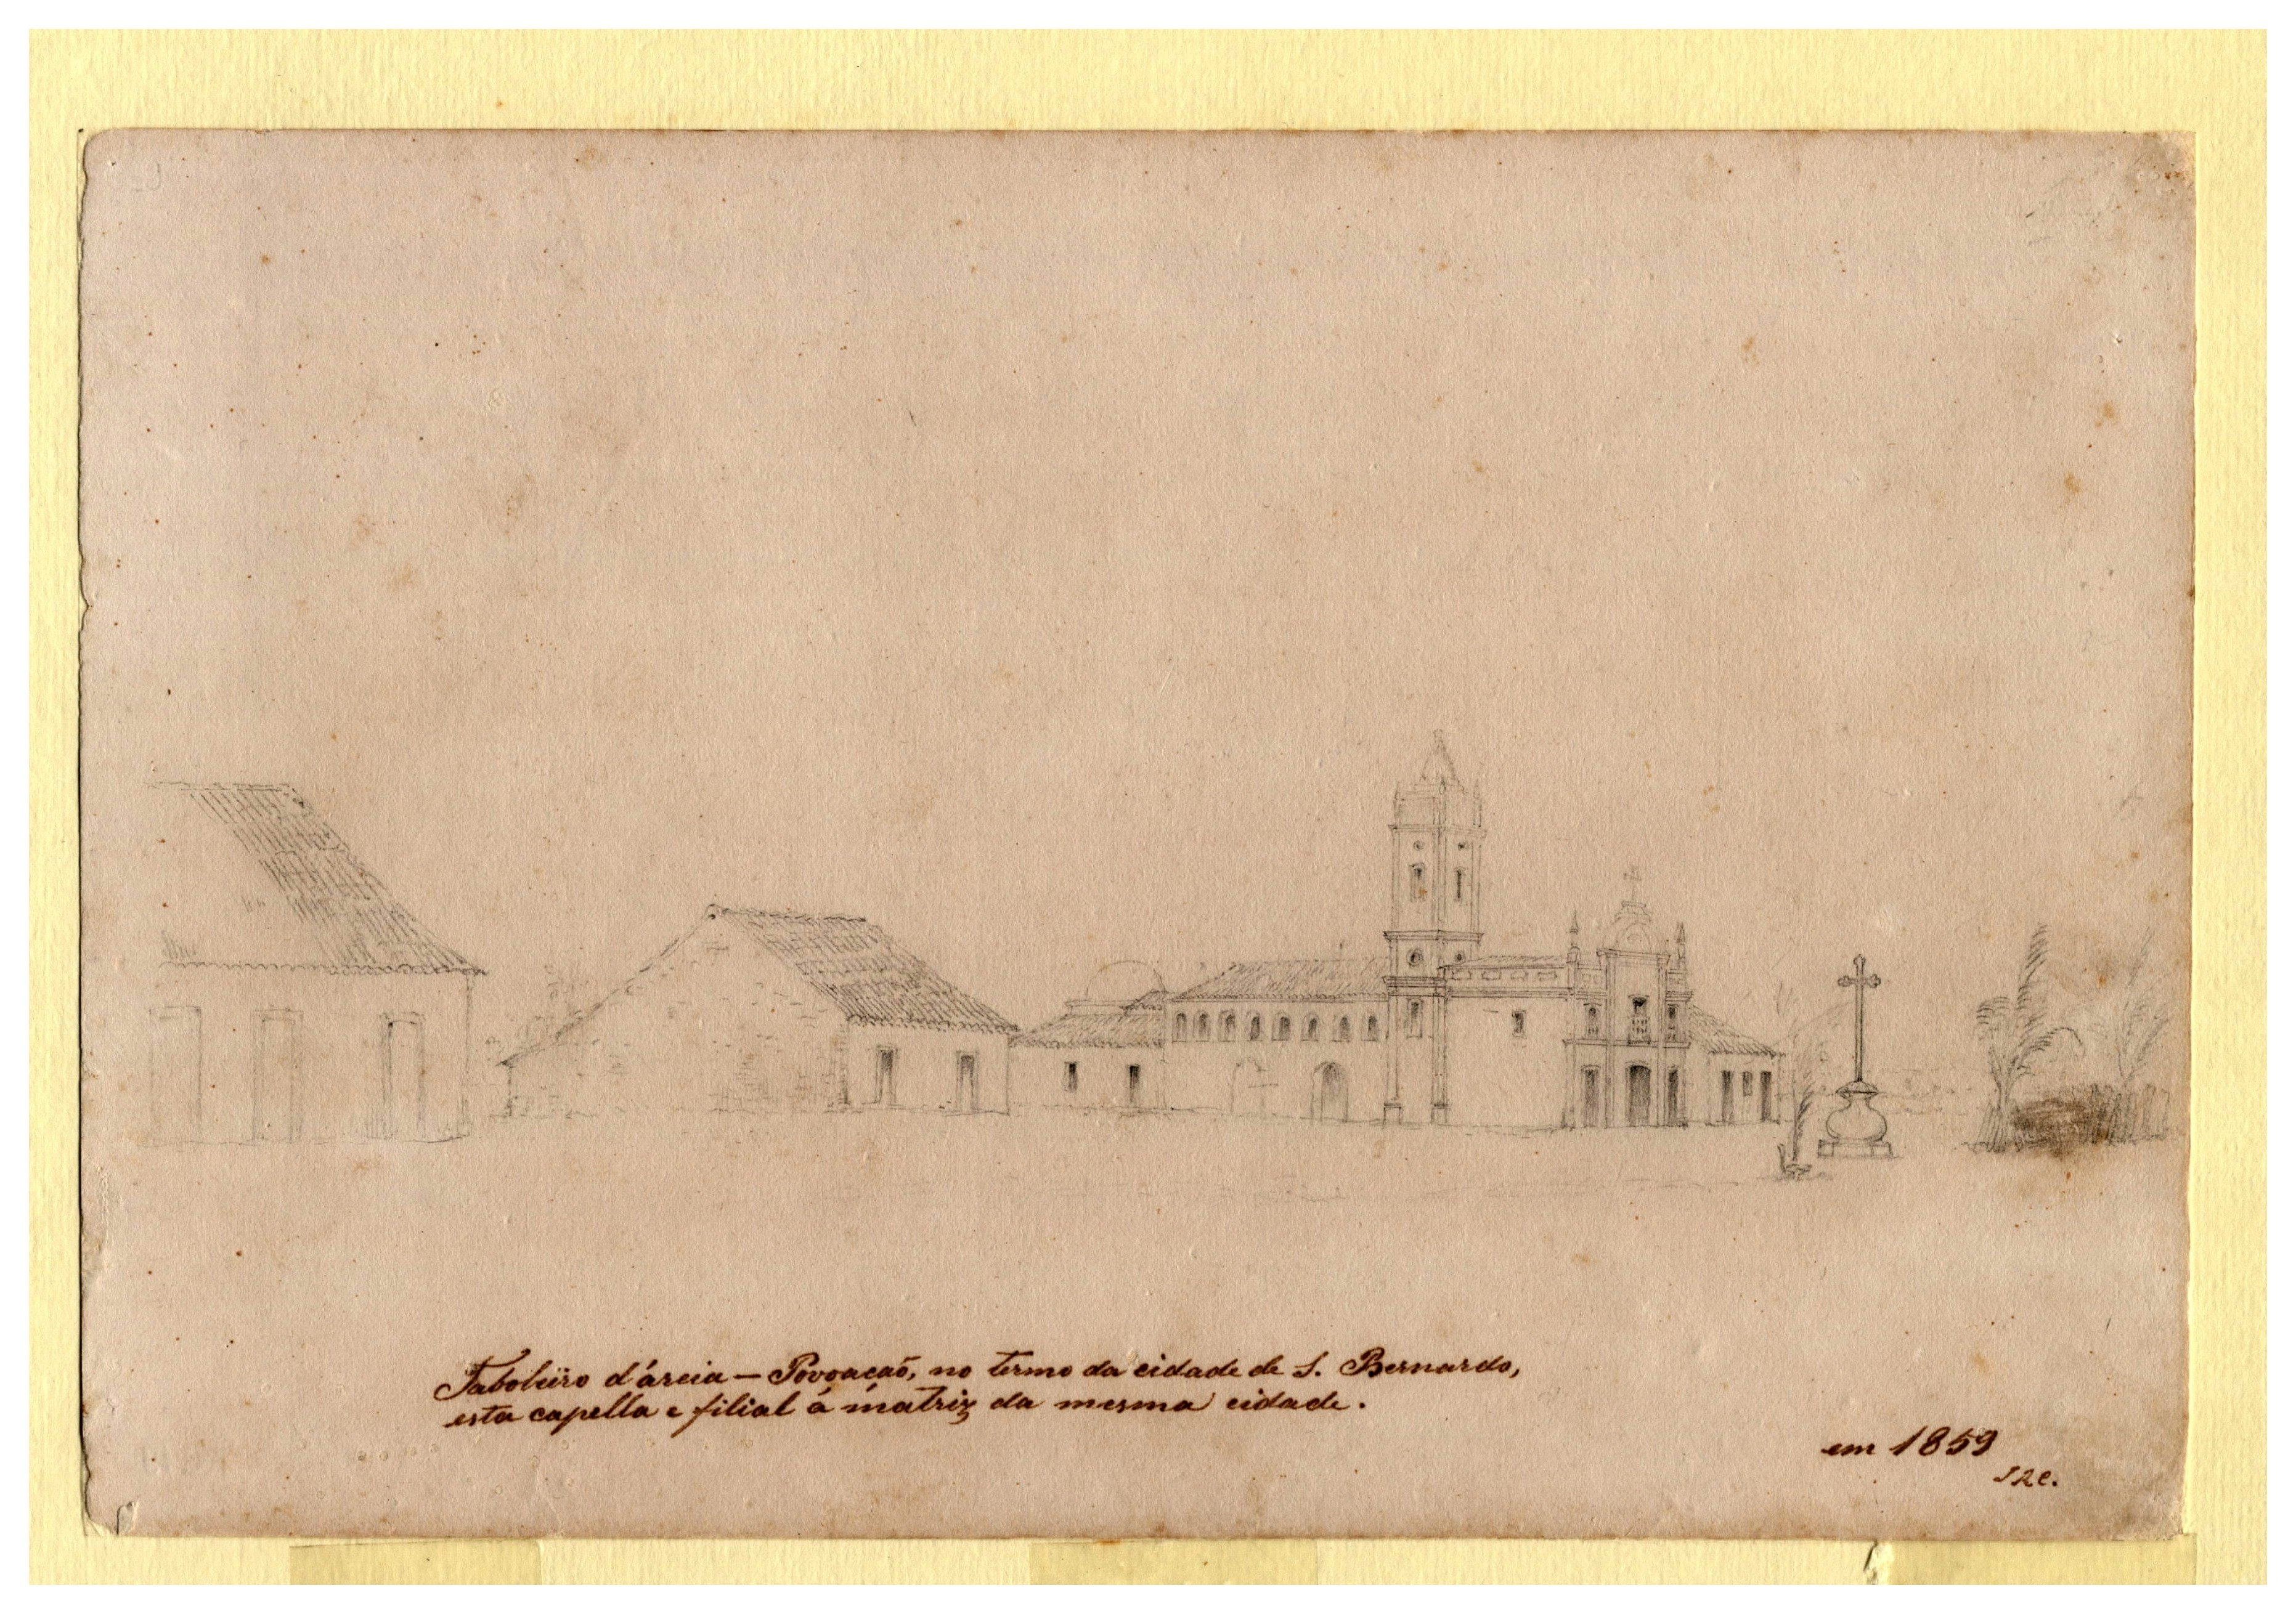 Taboleiro d'áreia — Povoacaõ, no termo da cidade de S. Bernardo,
esta capella e filial á matriz da mesma cidade.
em 1859